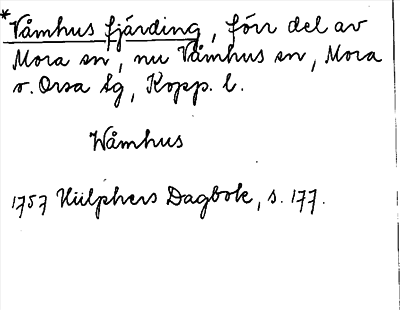 *Våmhus fjärding, förr del av
Mora sn, nu Våmhus sn, Mora
o. Orsa tg, Kopp. l.
Wåmhus
1757 Hülphers Dagbok, s. 177.